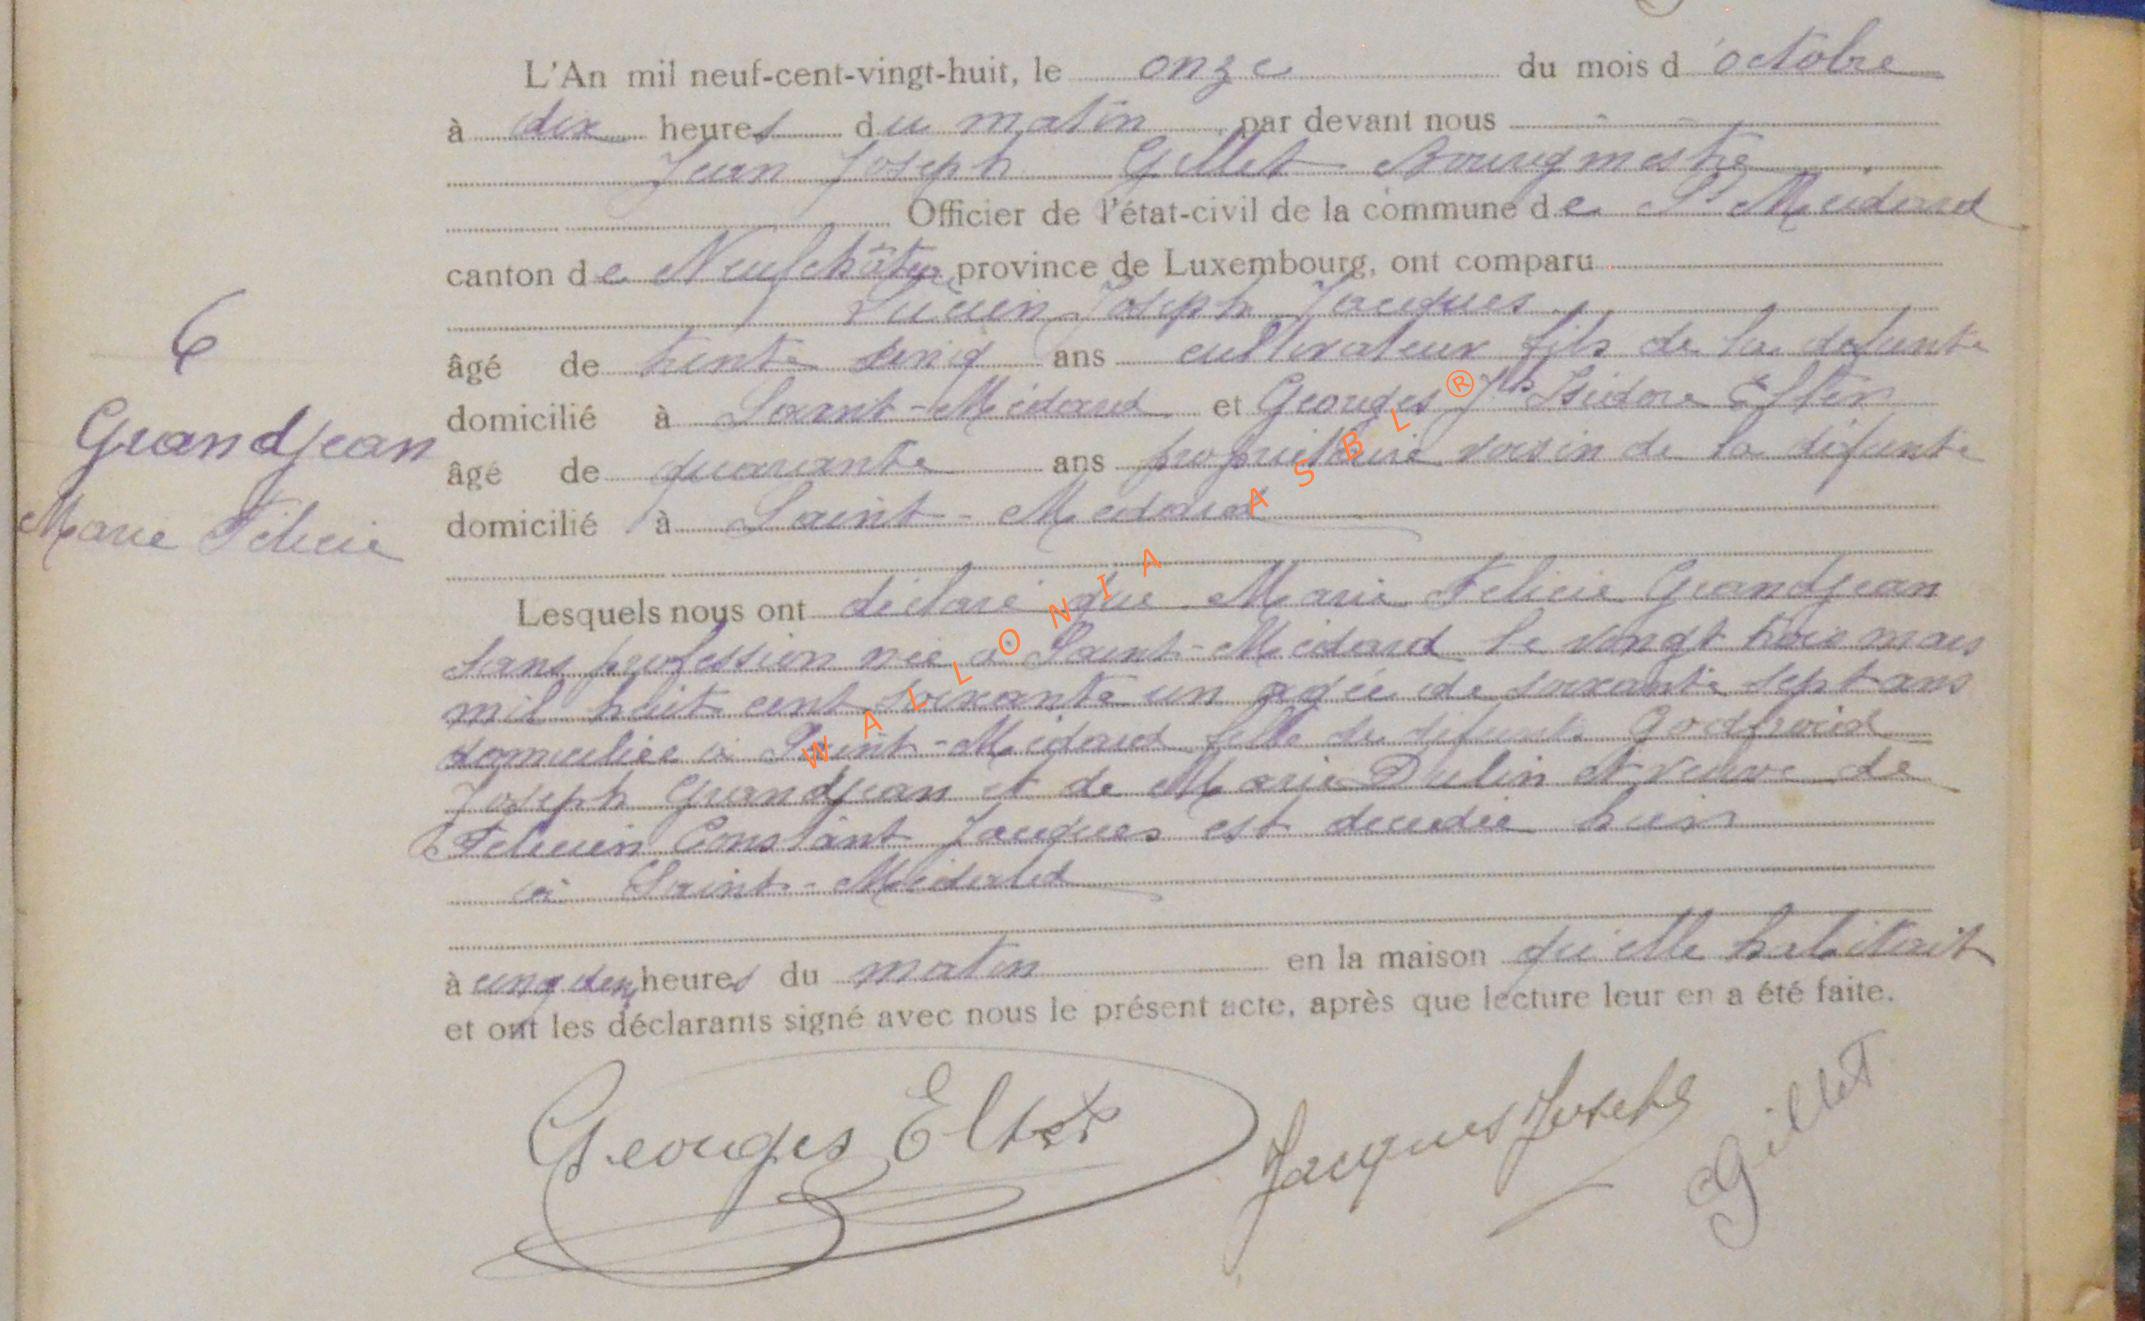 L'An mil neuf-cent-vingt-huit, le onze du mois d'octobre
à dix heures du matin par devant nous
Jean Joseph Gillet Bourgmestre
Officier de l'état-civil de la commune de St Médard
canton de Neufchâteau province de Luxembourg, ont comparu
Lucien Joseph Jacques
6
âgé de trente cinq ans cultivateur fils de la défunte
domicilié à Saint-Médard et Georges Jh Isidore
Grandjean
âgé de quarante ans propriétaire voisin de la défunte
Marie Felicie
domicilié à Saint-Médard
Lesquels nous ont déclaré que Marie Felicie Grandjean
sans profession née à Saint-Médard le vingt trois mars
mil huit cent soixante un agée de soixante sept ans
domiciliée à Saint-Médard fille de défunts Godfroid
Joseph Grandjean et de Marie Dulin et veuve de
Felicien Constant Jacques est décédée hier
à Saint-Médard
à cinq heures du matin en la maison qu'elle habitait
et ont les déclarants signé avec nous le présent acte, après que lecture leur en a été faite.
Georges
Jacques Joseph
Gillet
WALLONIA ASBL ®